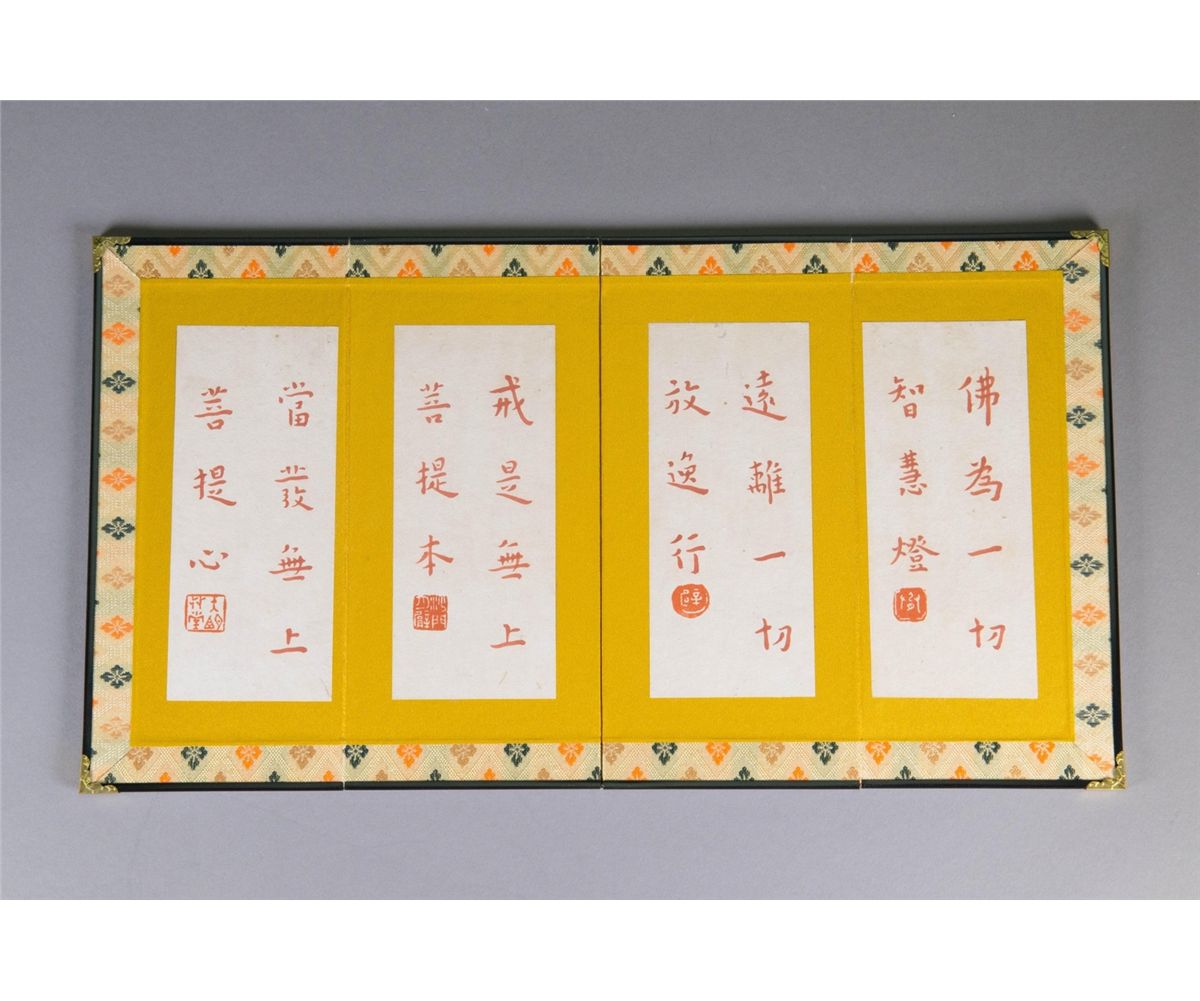 佛為一切
智慧燈
遠離一切
放逸行
戒是無上
菩提本
當發無上
菩提心